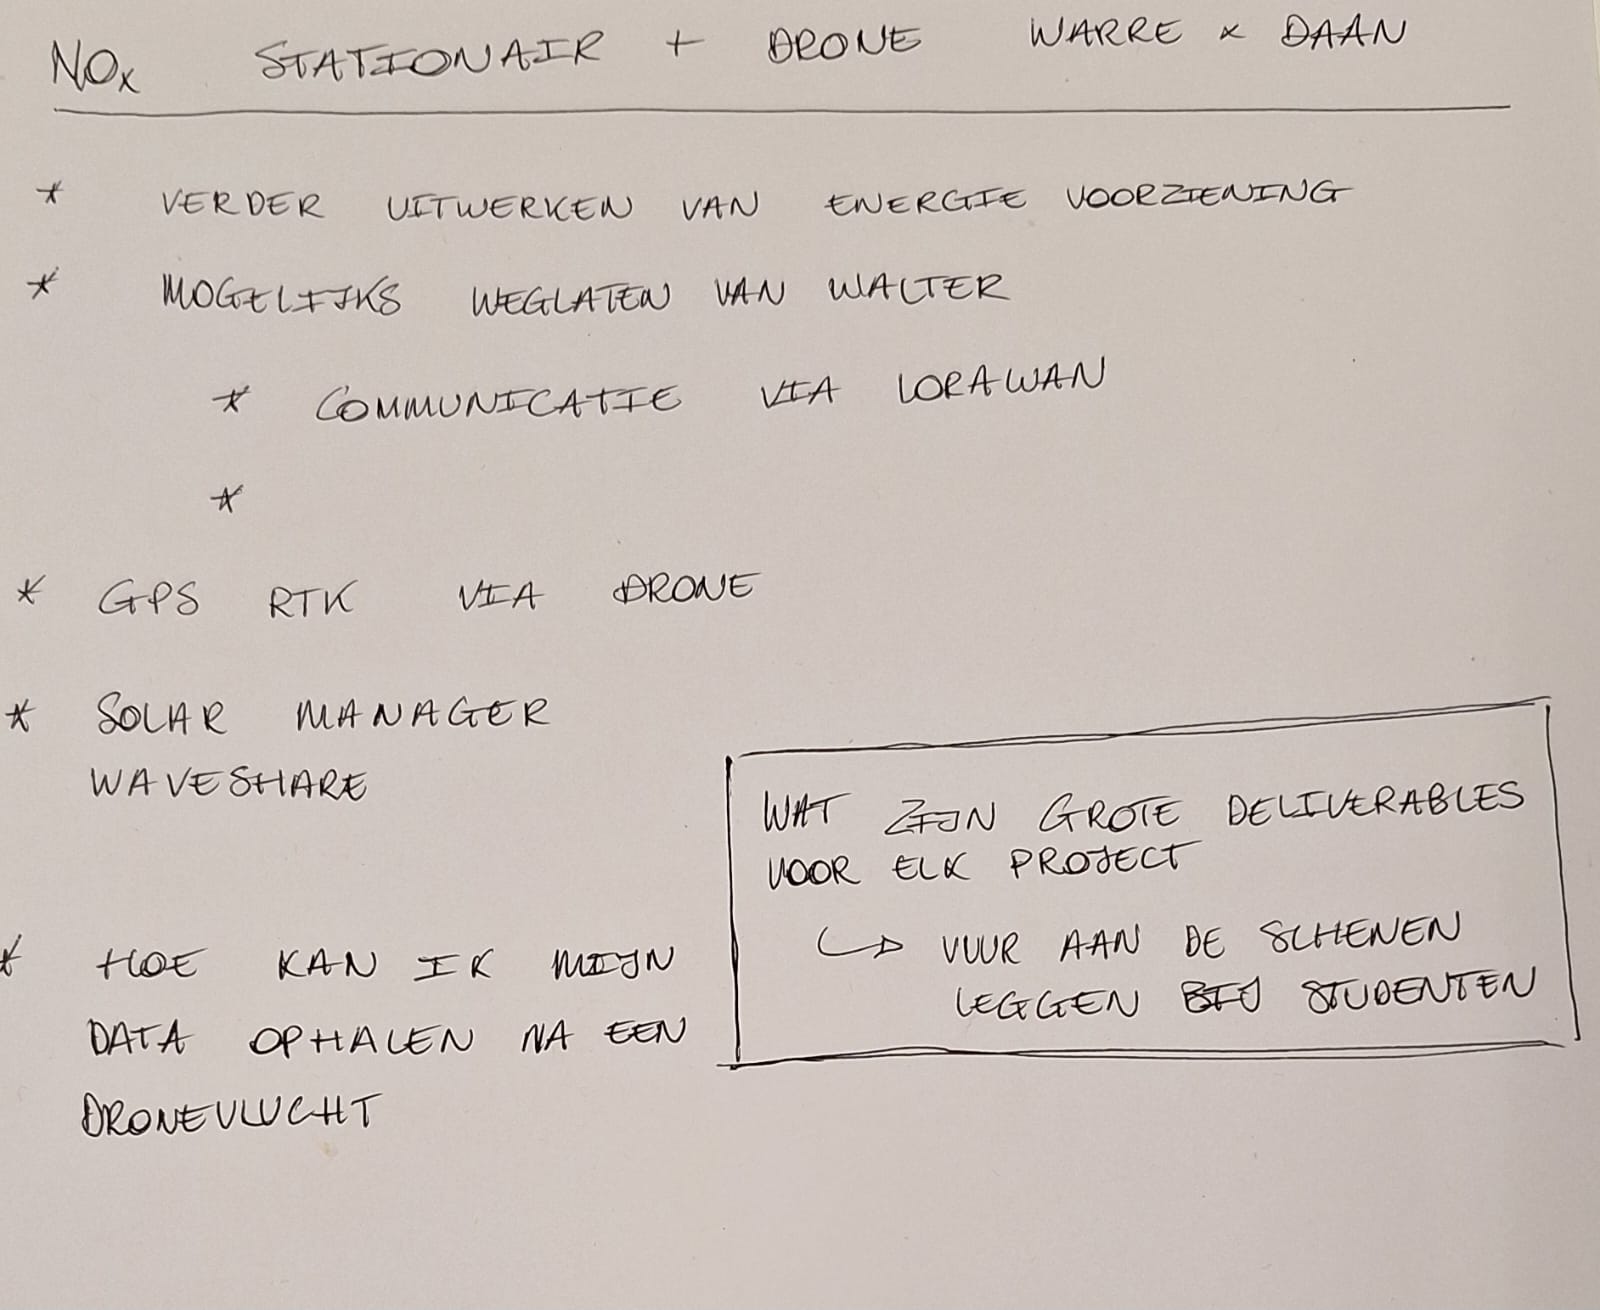 NOx STATIONAIR + DRONE WARRE & DAAN
* VERDER UITWERKEN VAN ENERGIE VOORZIENING
* MOGELIJKS WEGLATEN VAN WALTER
* COMMUNICATIE VIA LORAWAN
*
* GPS RTK VIA DRONE
* SOLAR MANAGER
WAVESHARE
* HOE KAN IK MIJN
DATA OPHALEN NA EEN
DRONEVLUCHT
WAT ZIJN GROTE DELIVERABLES
VOOR ELK PROJECT
↪ VUUR AAN DE SCHENEN
LEGGEN BIJ STUDENTEN